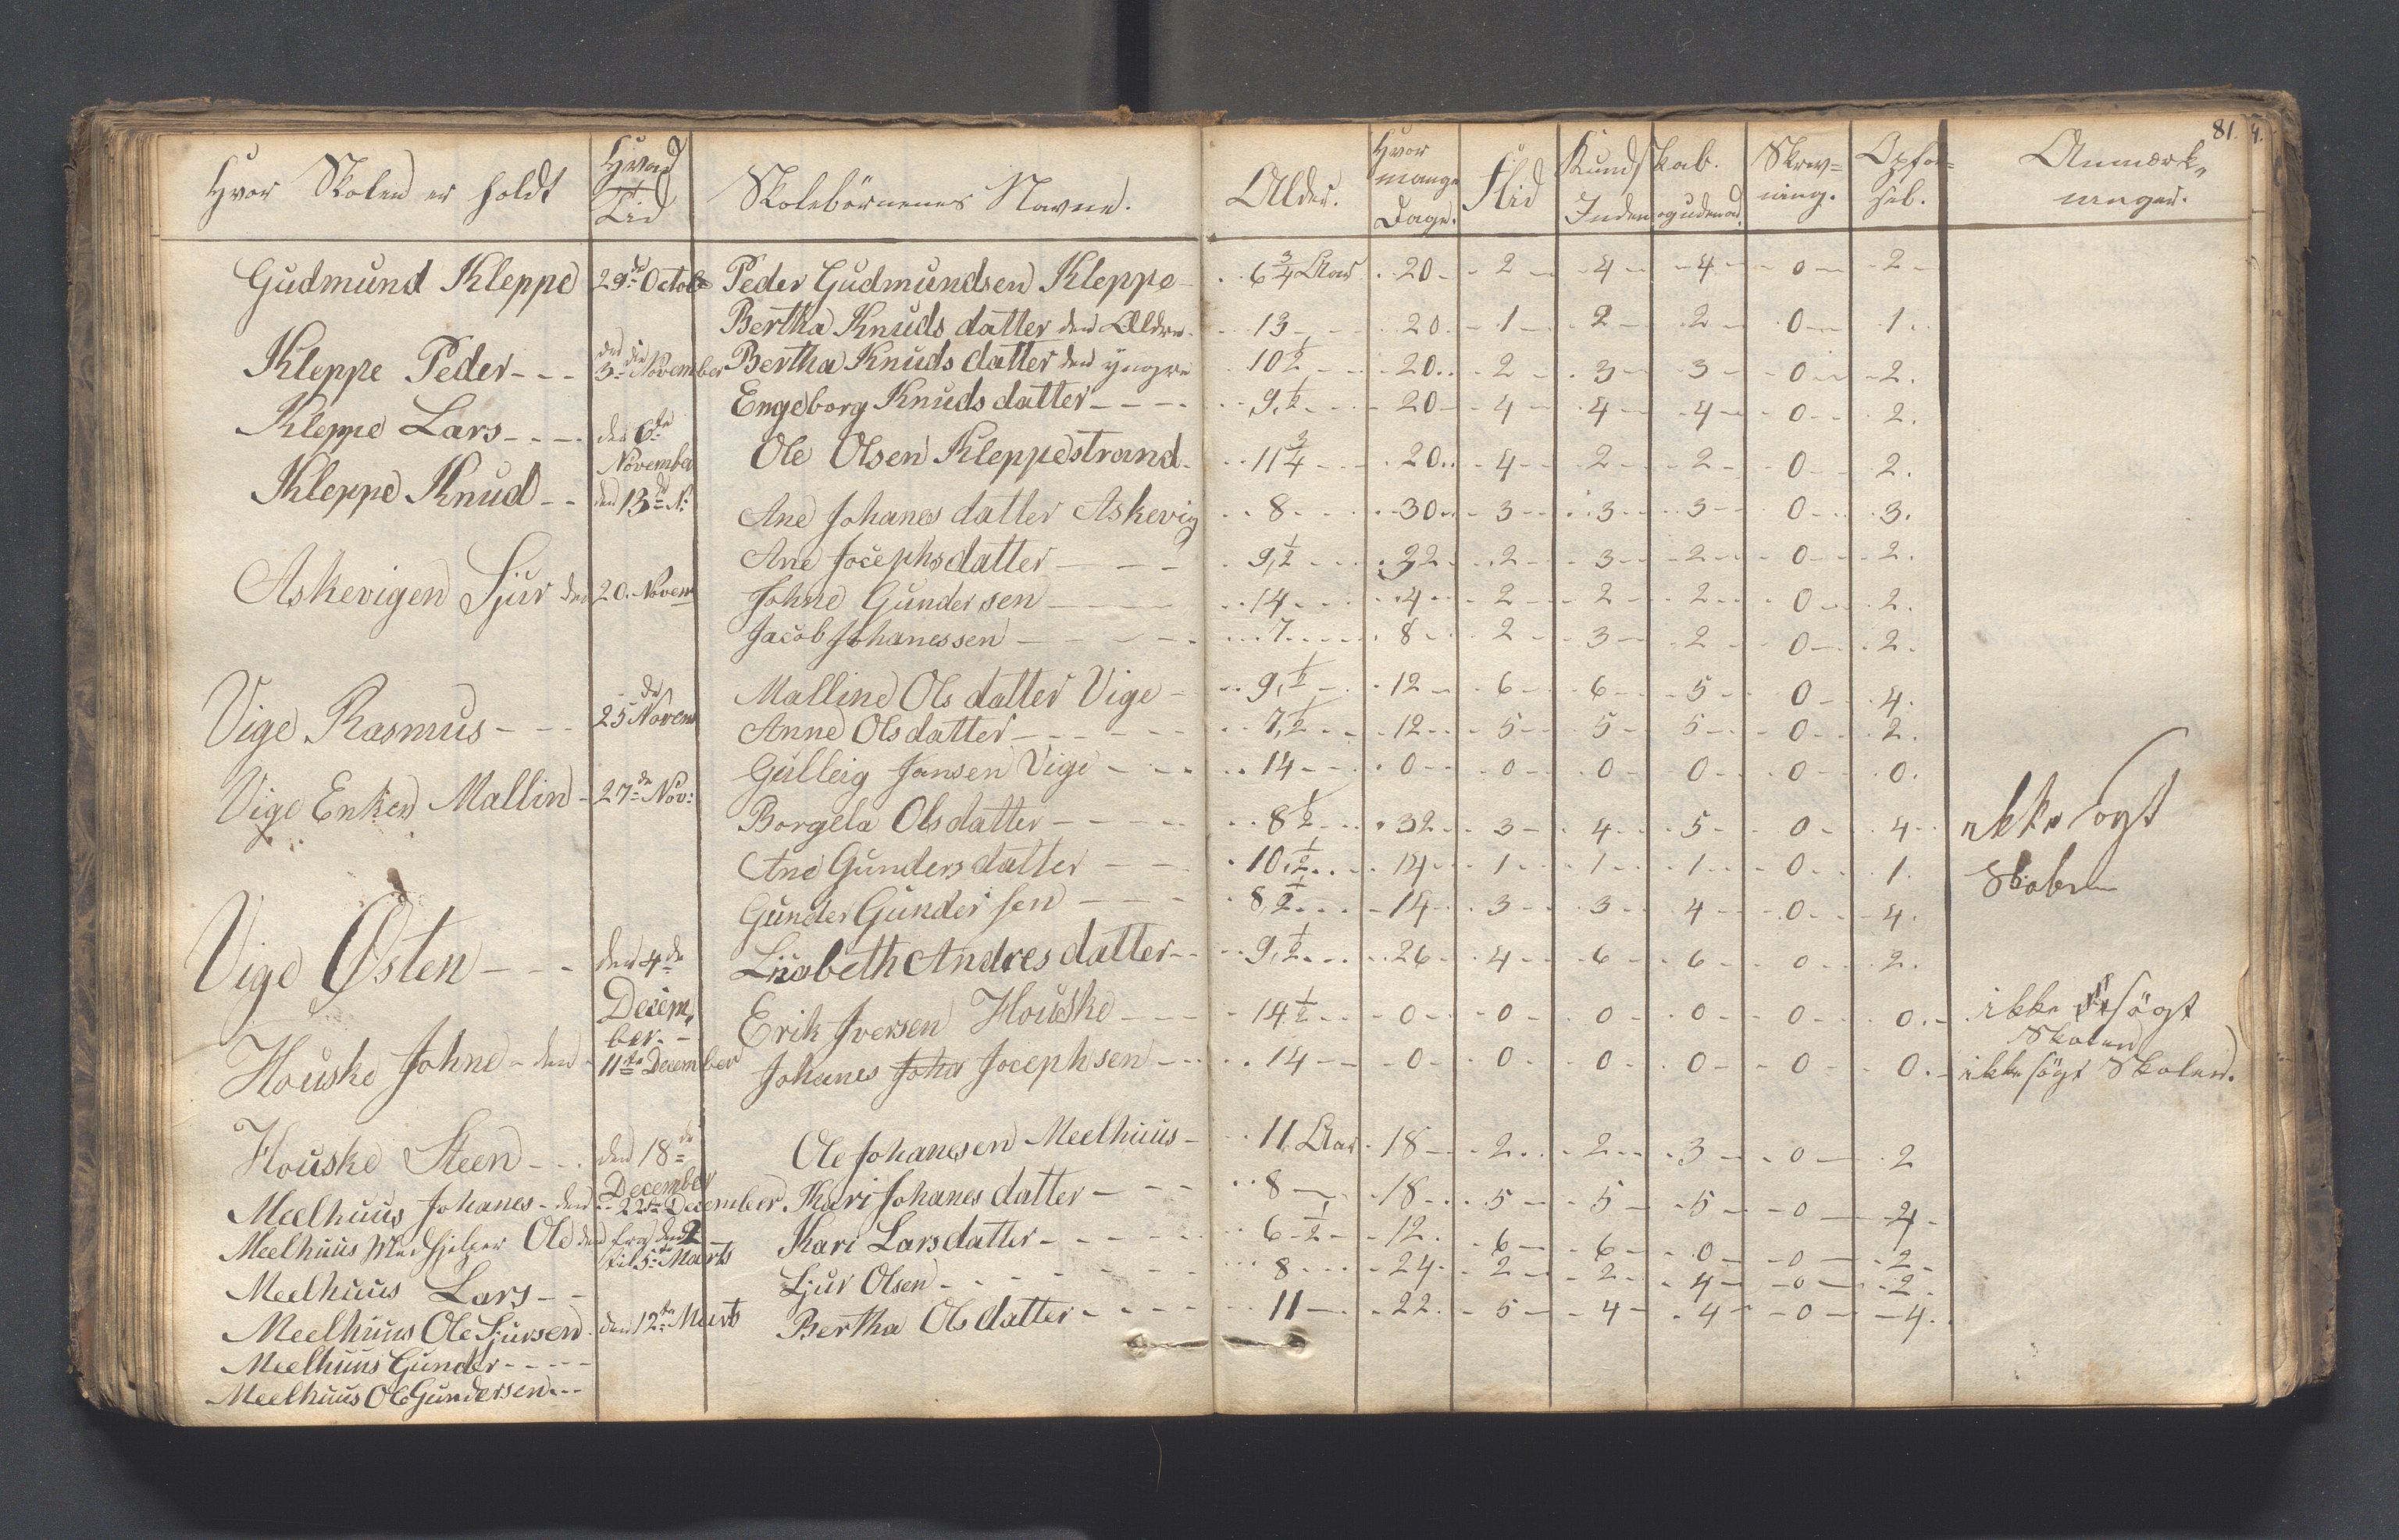 81.
Hvor Skolen er holdt | Hvad Tid | Skolebörnenes Navne. | Alder. | Hvor mange Dage. | Flid | Kundskab. Inden og udenad. | Skriv=ning. | Opför=sel. | Anmærkninger.
Gudmund Kleppe 29de Octob
Kleppe Peder - - - 3de November
Kleppe Lars - - - den 6te November
Kleppe Knud - - den 13de N:
Askevigen Sjur den 20. Novem
Vige Rasmus - - - 25de Novem
Vige Enken Mallin - 27de Nov:
Vige Østen - - - den 4de December. -
Houske Johne - den 11te December
Houske Steen - - - den 18de December
Meelhuus Johanes - den 22de December
Meelhuus Medhjelper Ole til 5te Marts
Meelhuus Lars - -
Meelhuus Ole Sjursen den 12te Marts
Meelhuus Gunder - - - - -
Meelhuus Ole Gundersen - - -
Peder Gudmundsen Kleppe - 6 3/4 Aar 20 2 4 4 0 2
Bertha Knuds datter den Ældre 13 20 1 2 2 0 1
Bertha Knuds datter den yngre 10 1/2 20 2 3 3 0 2
Engeborg Knuds datter - - - - 9, 1/2 20 4 4 4 0 2
Ole Olsen Kleppestrand 11 3/4 20 4 2 2 0 2
Ane Johanes datter Askevig 8 30 3 3 3 0 3
Ane Jocephs datter - - - 9, 1/2 32 2 3 2 0 2
Johne Gundersen - - - 14 4 2 2 2 0 2
Jacob Johanessen - - - - - 7 8 2 3 2 0 2
Malline Ols datter Vige - 9, 1/2 12 6 6 5 0 4
Anne Ols datter - - - - - 7, 1/2 12 5 5 5 0 2
Gulleig Jansen Vige - - - 14 0 0 0 0 0 0 ikke sögt Skolen
Borgela Ols datter - - - - - 8 1/2 32 3 4 5 0 4
Ane Gunders datter - - - 10, 1/2 14 1 1 1 0 1
Gunder Gundersen - - - - 8, 1/2 14 3 3 4 0 4
Lisabeth Andres datter - - 9, 1/2 26 4 6 6 0 2
Erik Iversen Houske - - - 14 1/2 0 0 0 0 0 0 ikke sögt Skolen
Johanes Joha Jocephsen - - 14 0 0 0 0 0 0 ikke sögt Skolen.
Ole Johanesen Meelhuus - 11 Aar 18 2 2 3 0 2
Kari Johanes datter - - - 8 18 5 5 5 0 4
Kari Lars datter - - - - - 6 1/2 12 6 6 0 0 2
Sjur Olsen - - - - - - - 8 24 2 2 4 0 2
Bertha Ols datter - - - - 11 22 5 4 4 0 4